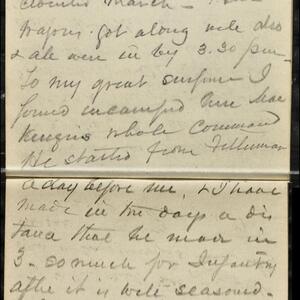 March -
wagons got along well also
& all were in by 3.30 pm-
To my great surprise I
found encamped here Mac
Kenzies whole command
He started from Fetterman
a day before me, & I have
made in two days a dis
tance that he made in
3 - so much for Infantry
after it is well seasoned -